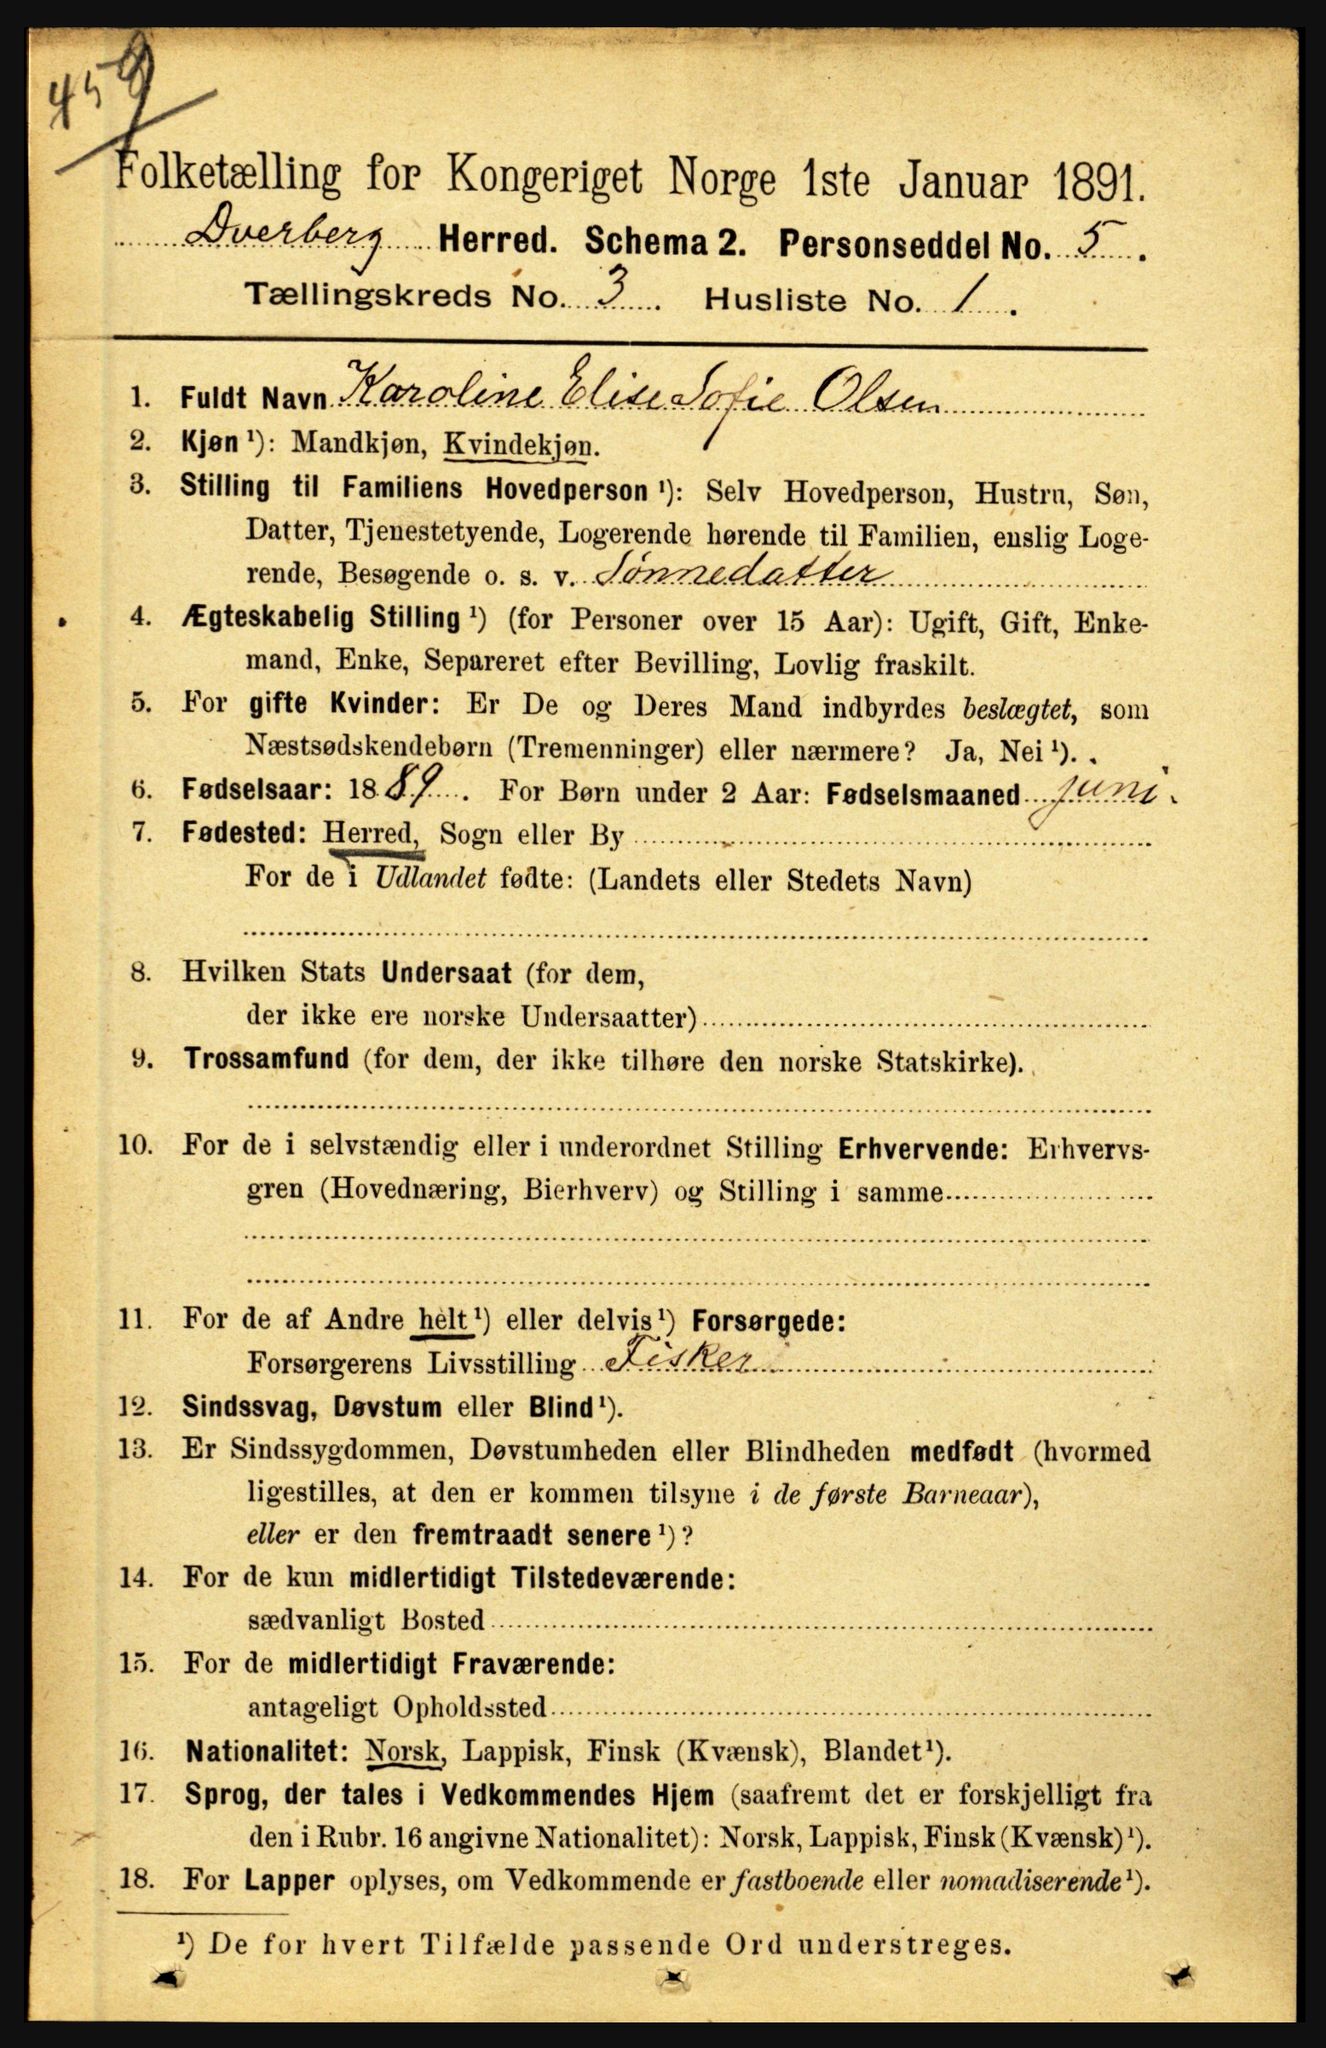 459
Folketælling for Kongeriget Norge 1ste Januar 1891.
Dverberg Herred. Schema 2. Personseddel No. 5.
Tællingskreds No. 3. Husliste No. 1.
1. Fuldt Navn Karoline Elise Sofie Olsen
2. Kjøn ¹): Mandkjøn, Kvindekjøn.
3. Stilling til Familiens Hovedperson ¹): Selv Hovedperson, Hustru, Søn,
Datter, Tjenestetyende, Logerende hørende til Familien, enslig Loge-
rende, Besøgende o. s. v. Sønnedatter
4. Ægteskabelig Stilling ¹) (for Personer over 15 Aar): Ugift, Gift, Enke-
mand, Enke, Separeret efter Bevilling, Lovlig fraskilt.
5. For gifte Kvinder: Er De og Deres Mand indbyrdes beslægtet, som
Næstsødskendebørn (Tremenninger) eller nærmere? Ja, Nei ¹).
6. Fødselsaar: 1889. For Børn under 2 Aar: Fødselsmaaned juni.
7. Fødested: Herred, Sogn eller By
For de i Udlandet fødte: (Landets eller Stedets Navn)
8. Hvilken Stats Undersaat (for dem,
der ikke ere norske Undersaatter)
9. Trossamfund (for dem, der ikke tilhøre den norske Statskirke).
10. For de i selvstændig eller i underordnet Stilling Erhvervende: Erhvervs-
gren (Hovednæring, Bierhverv) og Stilling i samme
11. For de af Andre helt ¹) eller delvis ¹) Forsørgede:
Forsørgerens Livsstilling Fisker
12. Sindssvag, Døvstum eller Blind ¹).
13. Er Sindssygdommen, Døvstumheden eller Blindheden medfødt (hvormed
ligestilles, at den er kommen tilsyne i de første Barneaar),
eller er den fremtraadt senere ¹)?
14. For de kun midlertidigt Tilstedeværende:
sædvanligt Bosted
15. For de midlertidigt Fraværende:
antageligt Opholdssted
16. Nationalitet: Norsk, Lappisk, Finsk (Kvænsk), Blandet ¹).
17. Sprog, der tales i Vedkommendes Hjem (saafremt det er forskjelligt fra
den i Rubr. 16 angivne Nationalitet): Norsk, Lappisk, Finsk (Kvænsk) ¹).
18. For Lapper oplyses, om Vedkommende er fastboende eller nomadiserende ¹).
¹) De for hvert Tilfælde passende Ord understreges.